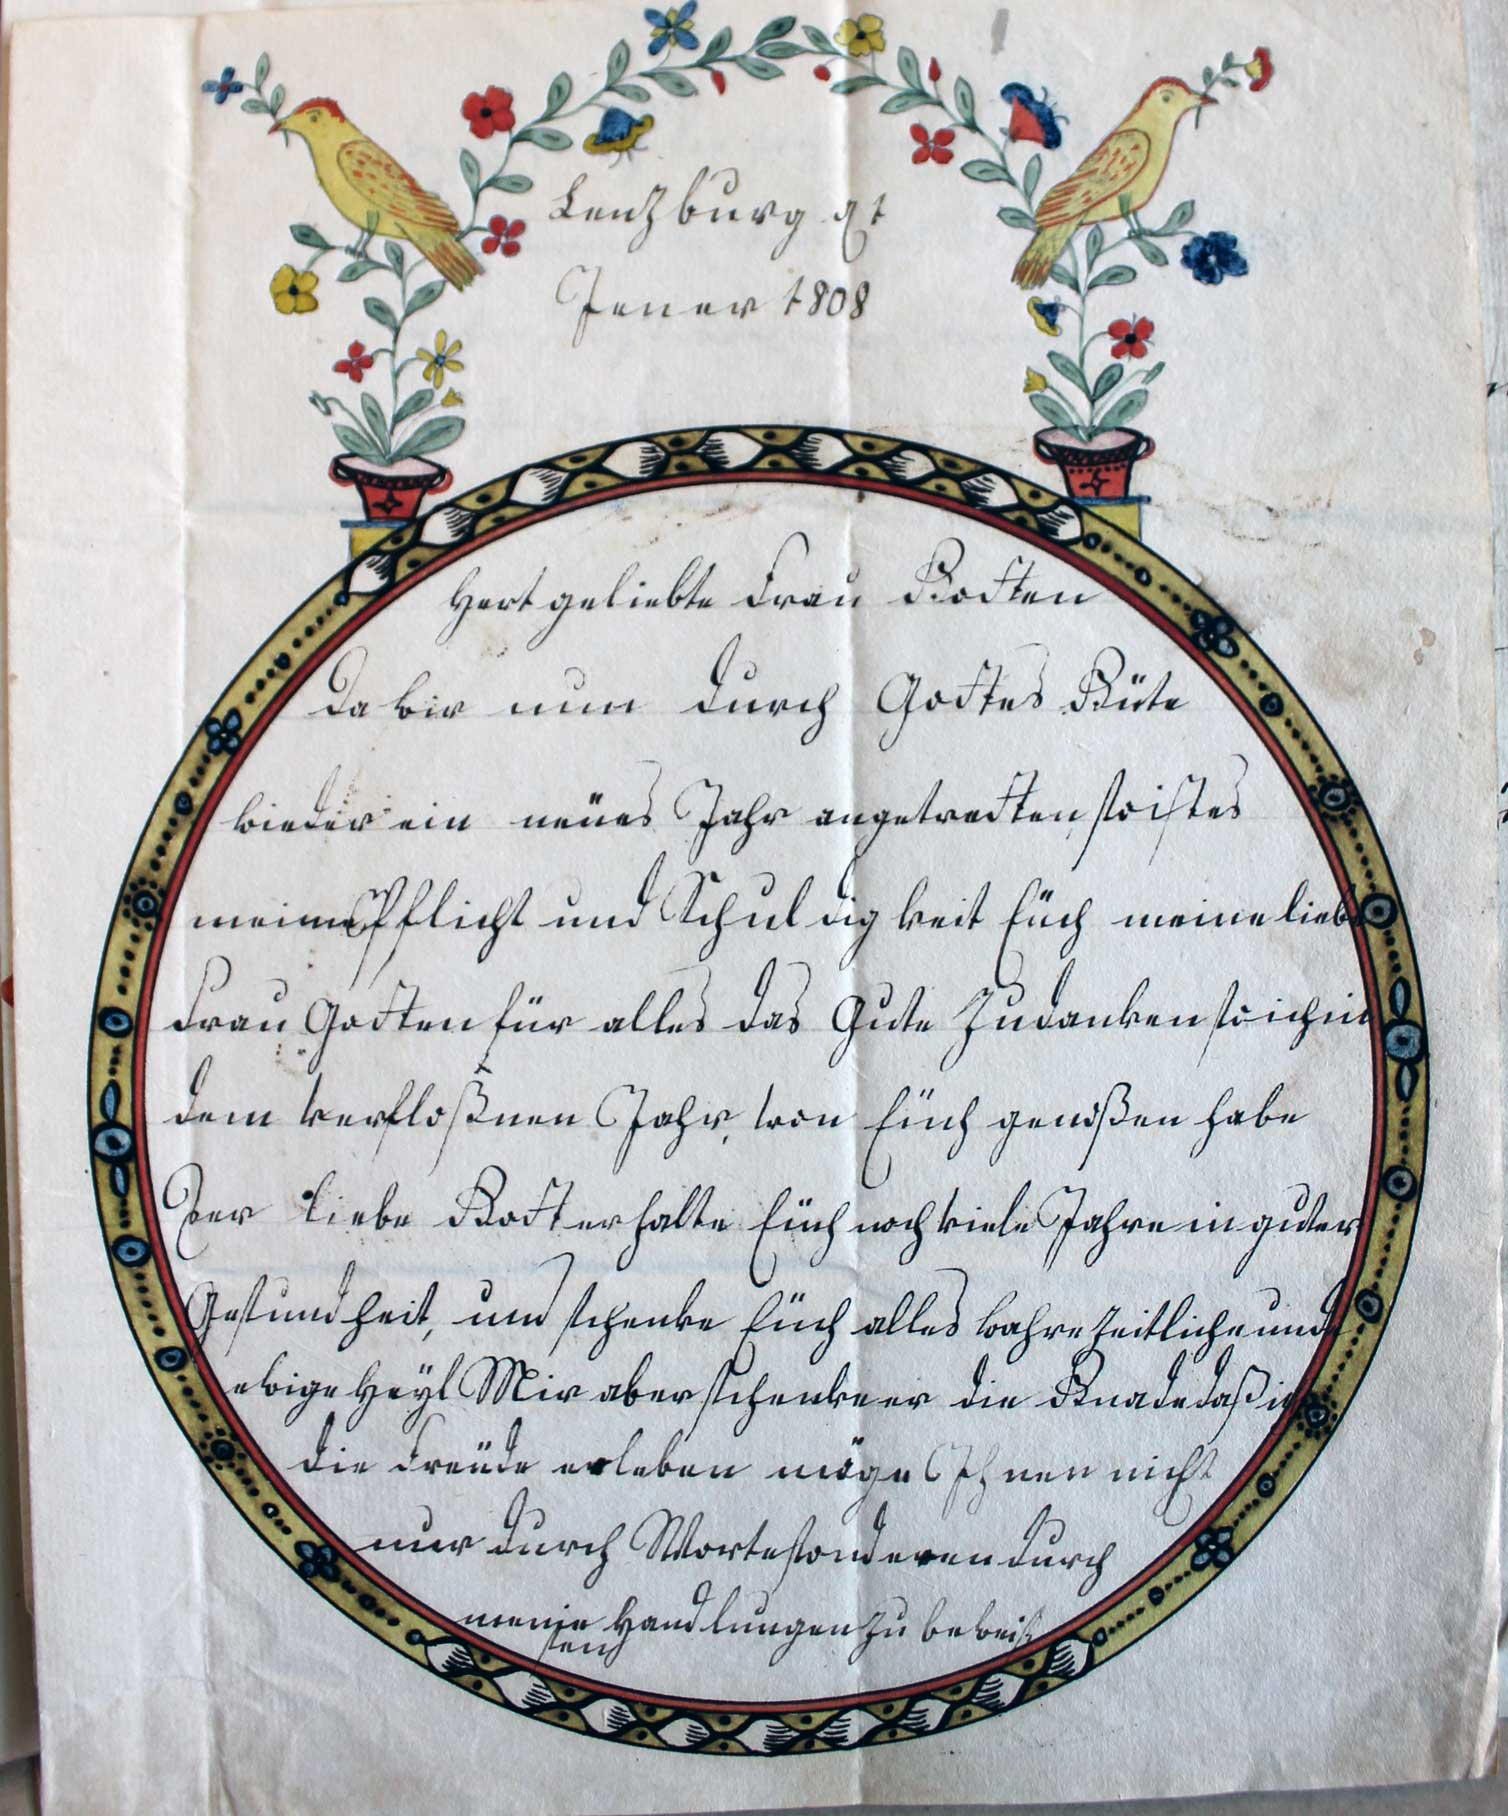 Lenzburg
Jener 1808
Hertgeliebte Frau Gotten
Da wir nun durch Gottes Güte
wieder ein neües Jahr angetretten, so ist es
meine Pflicht und Schuldigkeit Eüch meine liebe
Frau Gotten für alles das Gute zu danken so ich in
dem verfloßnen Jahr, von Eüch genoßen habe
Der liebe Gott erhalte Eüch noch viele Jahre in guter
Gesundheit, und schenke Eüch alles wahre zeitliche und
ewige Heyl Mir aber schenke er die Gnade daß ich
die Freüde erleben möge Ihnen nicht
nur durch Worte sonderen durch
meine Handlungen zu beweiß
sen